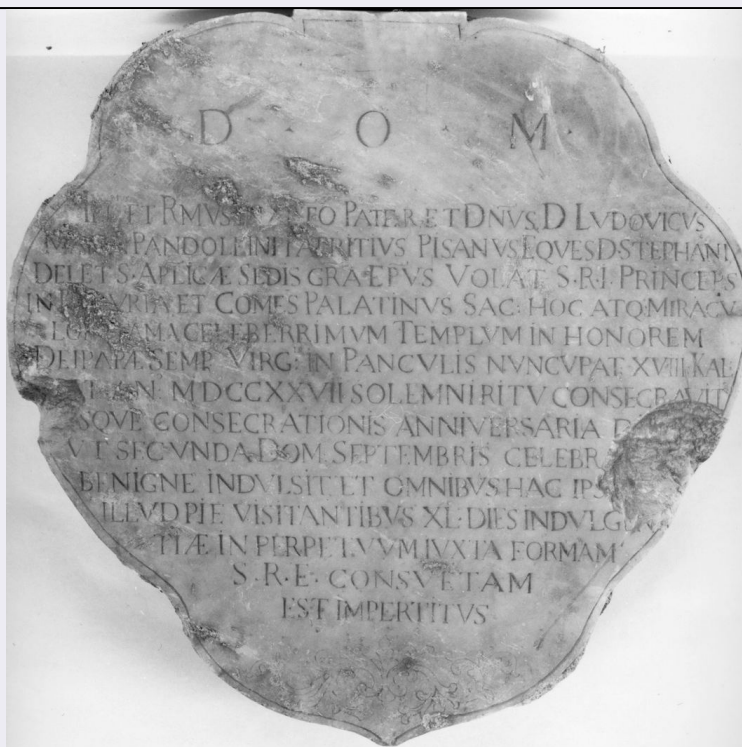 D · O · M ·
ET RMVS PATER ET DNVS D LVDOVICVS
PANDOLFINI PATRITIVS PISANVS EQVES D STEPHANI
DEI ET S · APLICÆ SEDIS GRA · EPVS VOLAT · S · R · I · PRINCEPS
IN ET COMES PALATINVS SAC · HOC ATQ · MIRACV
CELEBERRIMVM TEMPLVM IN HONOREM
DEIPARÆ SEMP · VIRG · IN PANCVLIS NVNCVPAT · XVIII KAL ·
MDCCXXVII SOLEMNI RITV CONSECRAVIT
CONSECRATIONIS ANNIVERSARIA
VT SECVNDA DOM · SEPTEMBRIS
BENIGNE INDVLSIT ET OMNIBVS HAC
ILLVD PIE VISITANTIBVS XL · DIES INDVLGEN
TIÆ IN PERPETVVM IVXTA FORMAM
S · R · E · CONSVETAM
EST IMPERTITVS